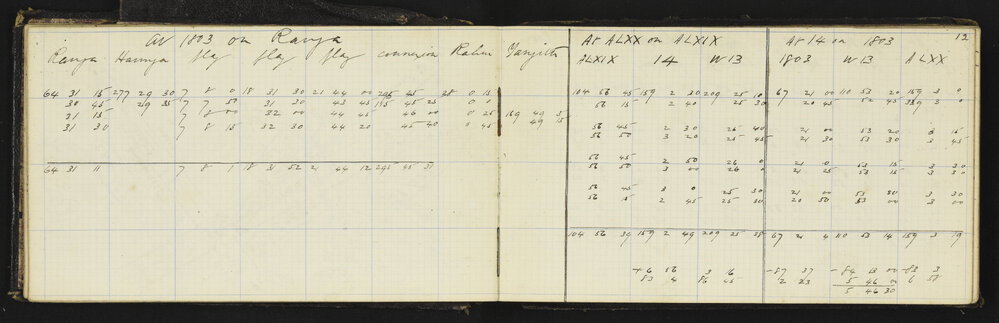 At 1803 on Ranga
Ranga Hamga flag flag flag connexion
64 31 15 277 29 30 7 8 0 18 31 30 21 44 00 295 45 28 0 15
30 45 29 35 7 7 50 31 30 43 45 115 45 25 0 0
31 15 7 8 00 32 00 44 45 46 00 0 25 169 49 5
31 30 7 8 15 32 30 44 20 45 40 0 45 49 15
64 31 11 7 8 1 18 31 52 21 44 12 295 45 37
12
At ALXX on ALXIX At 14 on 1803
ALXIX 14 W13 1803 W13 ALXX
104 56 45 159 2 30 209 25 10 67 21 00 110 53 20 159 3 0
56 15 2 40 25 30 20 45 52 45 339 3 0
56 45 2 30 26 40 21 00 53 20 3 15
56 50 3 20 25 45 21 30 53 30 3 45
56 45 2 50 26 0 21 0 53 15 3 30
56 50 3 00 26 0 21 25 53 15 3 30
56 45 3 0 25 30 21 00 53 00 3 30
56 15 2 45 25 30 20 50 53 00 3 00
104 56 36 159 2 49 209 25 38 67 21 4 110 53 14 159 3 19
+6 56 3 16 -87 37 -84 13 00 -83 3
83 4 86 45 2 23 5 46 00 6 58
5 46 30